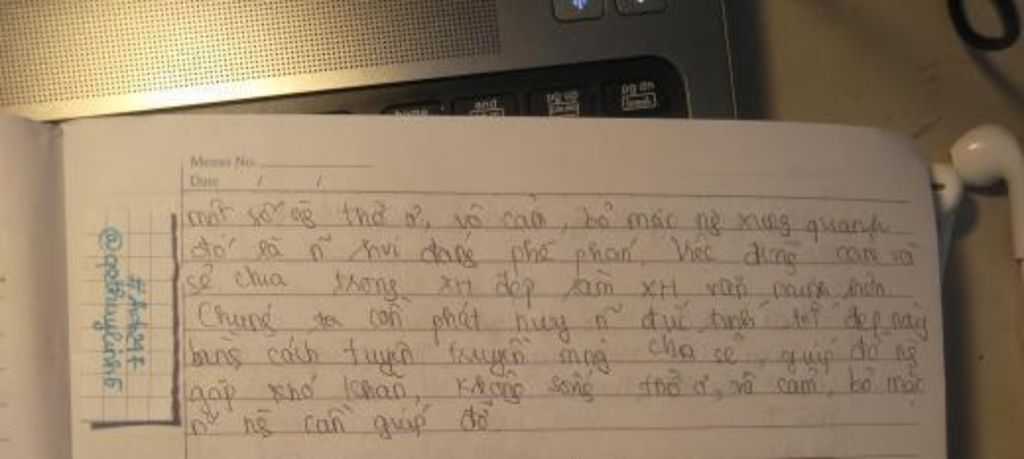 end
pg up
pg dn
Memo No.
Date / /
một số ng thờ ơ, vô cảm, bỏ mặc ng xung quanh
đó là n~ hvi đáng phê phán. Việc đồng cảm và
sẻ chia trong XH đẹp làm XH văn minh hơn
Chúng ta cần phát huy n~ đức tính tốt đẹp này
bằng cách tuyên truyền mng chia sẻ, giúp đỡ ng
gặp khó khăn, không sống thờ ơ, vô cảm, bỏ mặc
n~ ng cần giúp đỡ